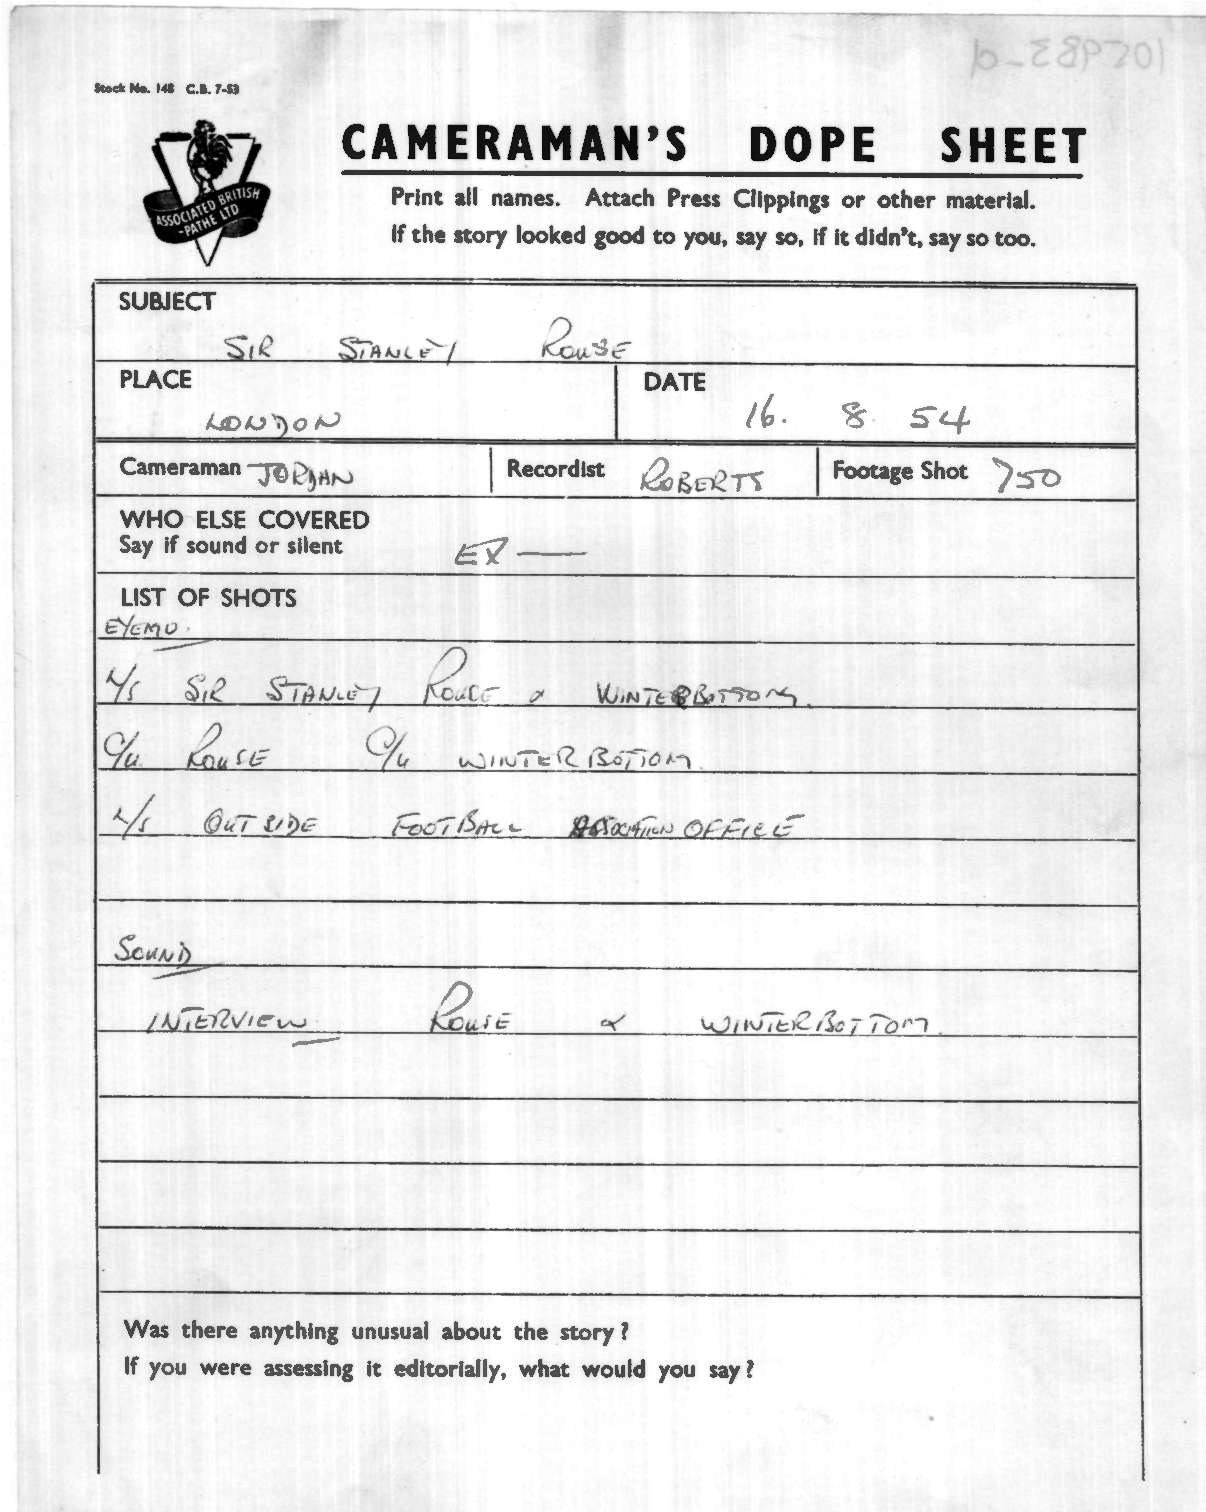 Stock No. 148 C.B. 7-53
ASSOCIATED BRITISH
-PATHE LTD
CAMERAMAN'S DOPE SHEET
Print all names. Attach Press Clippings or other material.
If the story looked good to you, say so, if it didn't, say so too.
SUBJECT
SIR STANLEY ROUSE
PLACE
DATE
LONDON
16. 8. 54
Cameraman JORDAN Recordist ROBERTS Footage Shot 750
WHO ELSE COVERED
Say if sound or silent
EX —
LIST OF SHOTS
EYEMO.
L/S SIR STANLEY ROUSE & WINTERBOTTOM.
C/U. ROUSE C/U WINTERBOTTOM.
L/S OUTSIDE FOOTBALL ASSOCIATION OFFICE
SOUND
INTERVIEW ROUSE & WINTERBOTTOM.
Was there anything unusual about the story?
If you were assessing it editorially, what would you say?